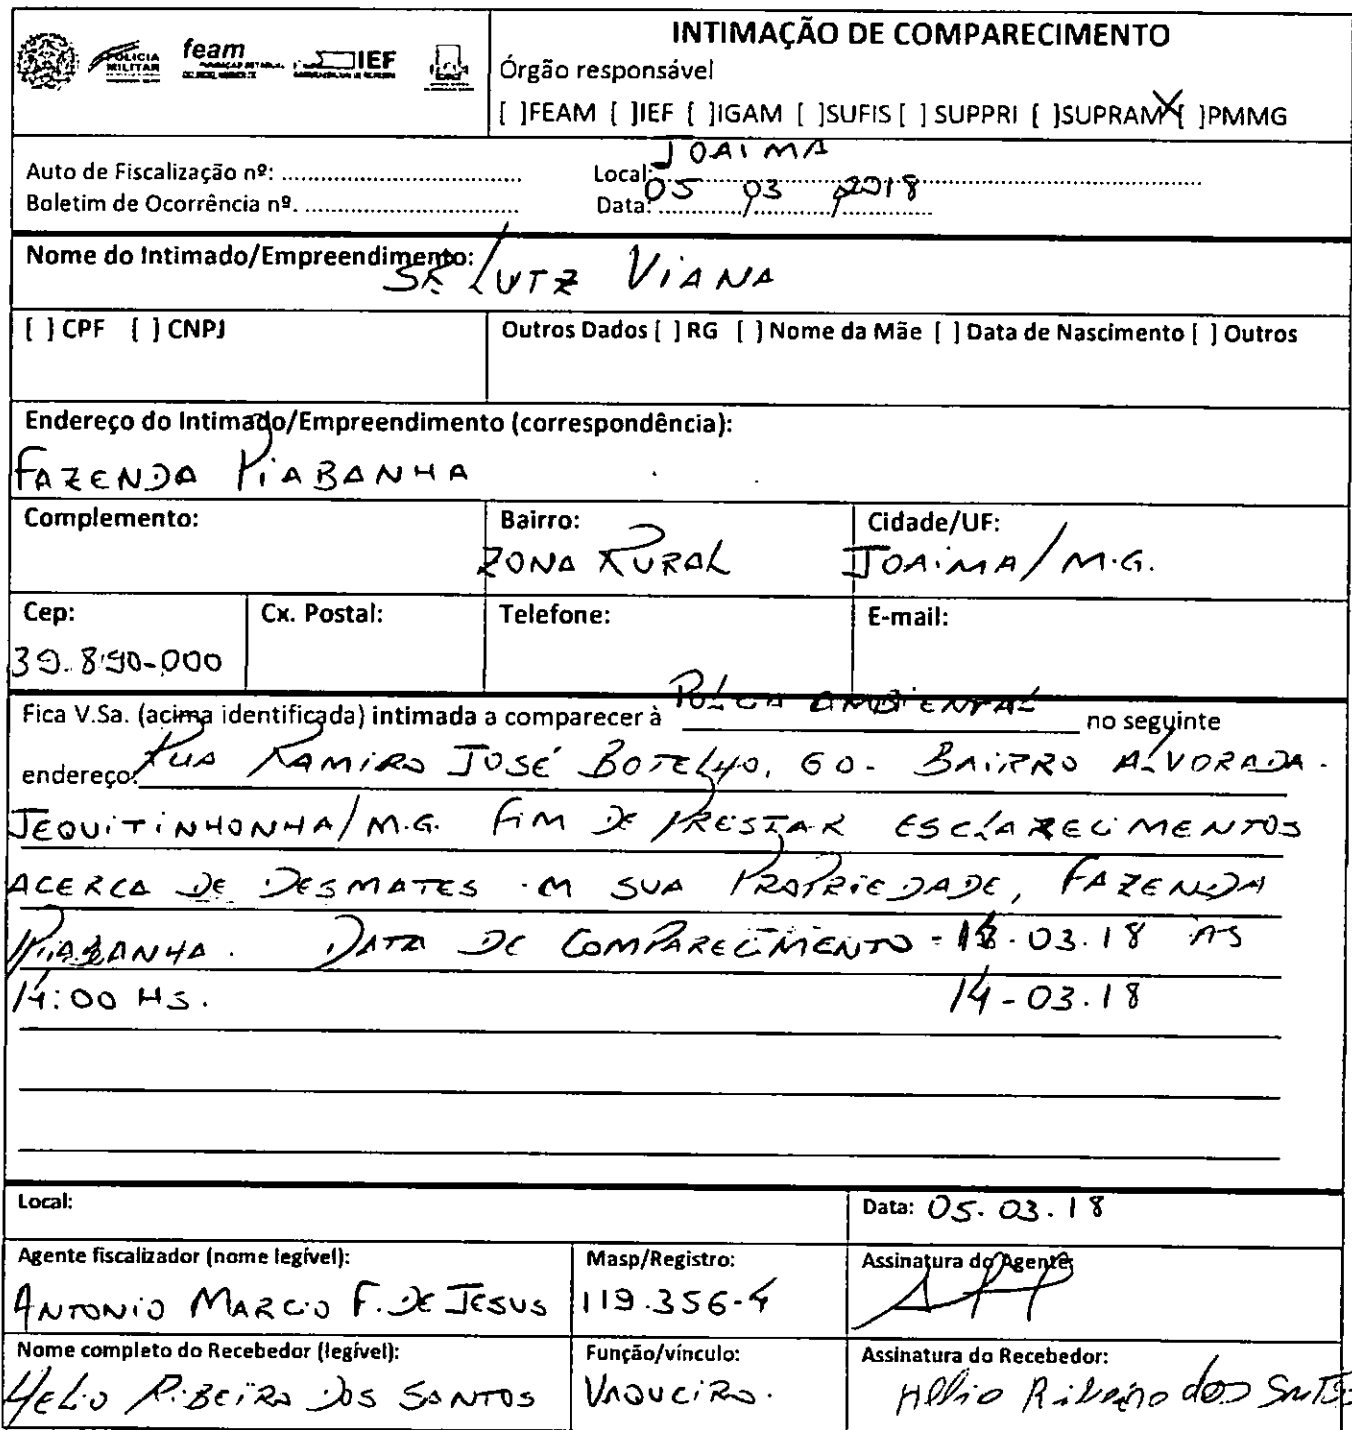 POLICIA MILITAR feam IEF
INTIMAÇÃO DE COMPARECIMENTO
Órgão responsável
[ ]FEAM [ ]IEF [ ]IGAM [ ]SUFIS [ ] SUPPRI [ ]SUPRAM [X]PMMG
Auto de Fiscalização nº: ................................ Local: JOAIMA
Boletim de Ocorrência nº. ............................. Data: 05/03/2018
Nome do Intimado/Empreendimento:
SR LUIZ VIANA
[ ] CPF [ ] CNPJ
Outros Dados [ ] RG [ ] Nome da Mãe [ ] Data de Nascimento [ ] Outros
Endereço do Intimado/Empreendimento (correspondência):
FAZENDA PIABANHA
Complemento: Bairro: Cidade/UF:
ZONA RURAL JOAIMA/M.G.
Cep: Cx. Postal: Telefone: E-mail:
39.890-000
Fica V.Sa. (acima identificada) intimada a comparecer à POLICIA AMBIENTAL no seguinte
endereço: RUA RAMIRO JOSÉ BOTELHO, 60 - BAIRRO ALVORADA -
JEQUITINHONHA/M.G. FIM DE PRESTAR ESCLARECIMENTOS
ACERCA DE DESMATES EM SUA PROPRIEDADE, FAZENDA
PIABANHA. DATA DE COMPARECIMENTO - .03.18 AS
14:00 HS. 14-03.18
Local: Data: 05.03.18
Agente fiscalizador (nome legível): Masp/Registro: Assinatura do Agente
ANTONIO MARCIO F. DE JESUS 119.356-4
Nome completo do Recebedor (legível): Função/vínculo: Assinatura do Recebedor:
HELIO RIBEIRO DOS SANTOS VAQUEIRO. Helio Ribeiro dos